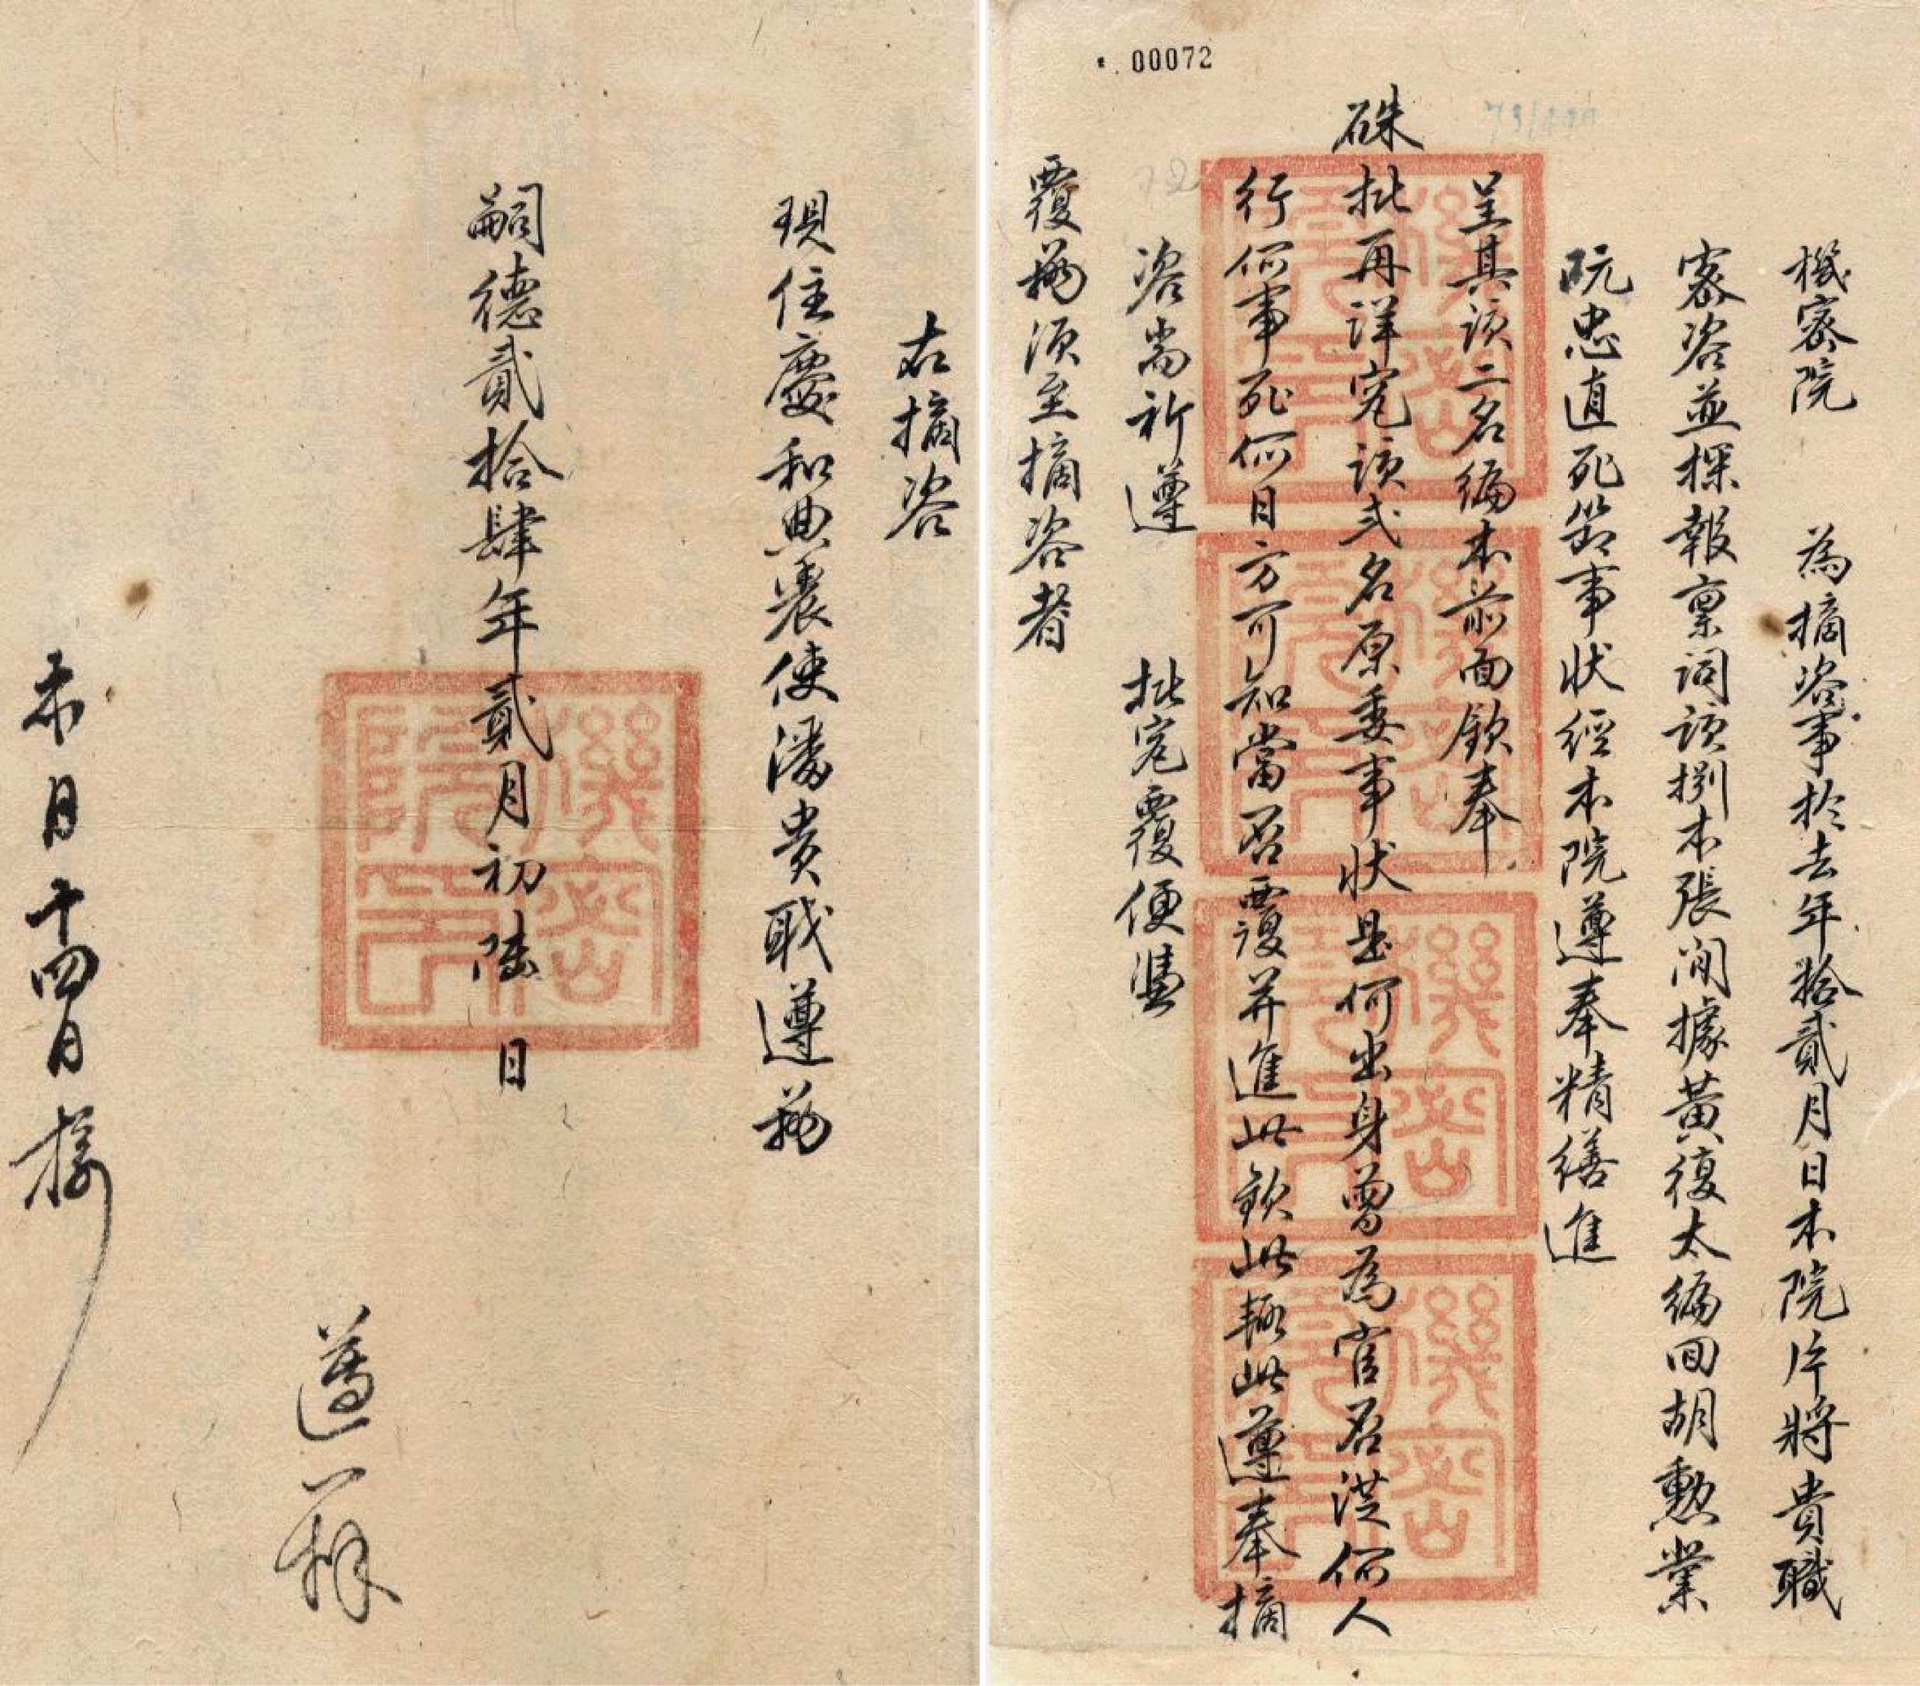 00072
機密院 為摘咨事於去年拾貳月日本院片將貴職
密咨並探報稟詞該捌本張開據黃復太編回胡勳業
阮忠直死節事狀經本院遵奉精繕進
呈其該二名編本前面欽奉
硃批再詳究該弍名原委事狀是何出身曾為官否從何人
行何事死何日方可知當否覆并進此欽此輒此遵奉摘
咨耑祈遵 批究覆便遵
覆茲須至摘咨者
右摘咨
現住慶和典農使潘貴職遵茲
嗣德貳拾肆年貳月初陸日
機密院印
本月十四日接